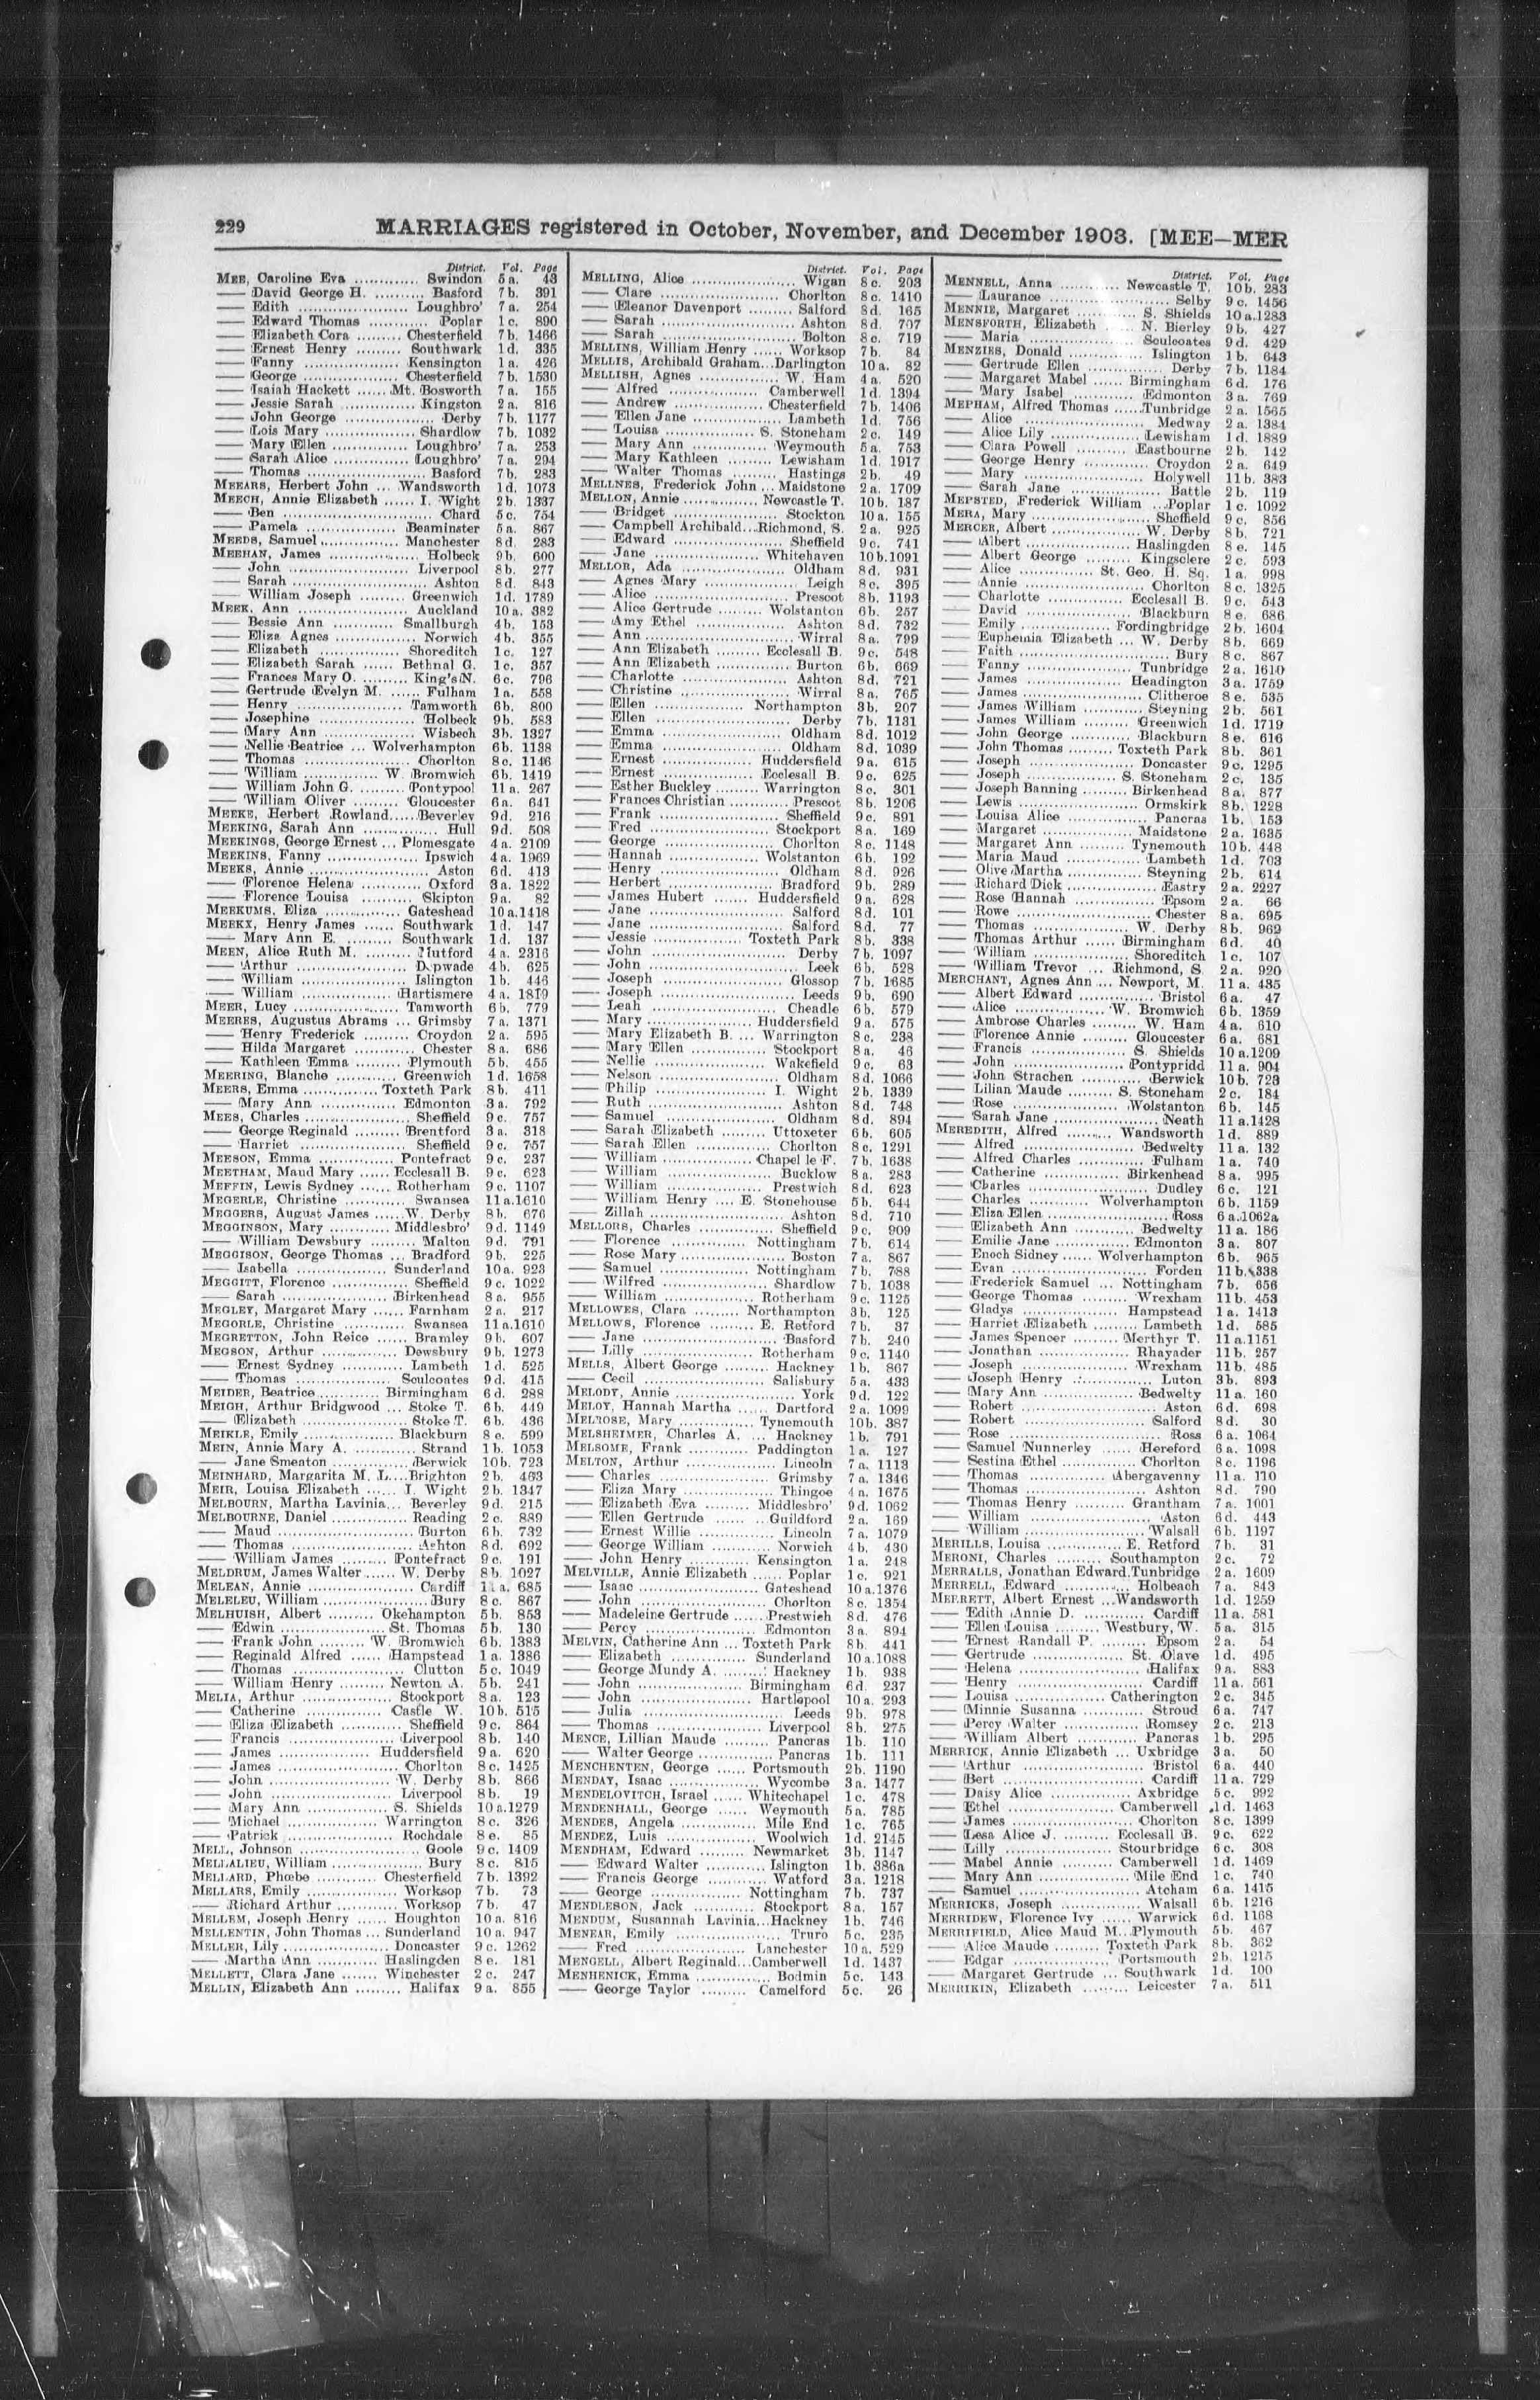 229 MARRIAGES registered in October, November, and December 1903. [MEE—MER
District. Vol. Page
MEE, Caroline Eva ............. Swindon 5 a. 43
—— David George H. .......... Basford 7 b. 391
—— Edith ...................... Loughbro' 7 a. 254
—— Edward Thomas ............ Poplar 1 c. 890
—— Elizabeth Cora ......... Chesterfield 7 b. 1466
—— Ernest Henry ......... Southwark 1 d. 335
—— Fanny ................... Kensington 1 a. 426
—— George ................... Chesterfield 7 b. 1530
—— Isaiah Hackett ...... Mt. Bosworth 7 a. 155
—— Jessie Sarah ............... Kingston 2 a. 816
—— John George ................... Derby 7 b. 1177
—— Lois Mary .................. Shardlow 7 b. 1032
—— Mary Ellen .................. Loughbro' 7 a. 253
—— Sarah Alice ............... Loughbro' 7 a. 294
—— Thomas ........................ Basford 7 b. 283
MEEARS, Herbert John ... Wandsworth 1 d. 1073
MEECH, Annie Elizabeth ...... I. Wight 2 b. 1337
—— Ben .............................. Chard 5 c. 754
—— Pamela ..................... Beaminster 5 a. 867
MEEDS, Samuel ............... Manchester 8 d. 283
MEEHAN, James .................. Holbeck 9 b. 600
—— John .......................... Liverpool 8 b. 277
—— Sarah ........................... Ashton 8 d. 843
—— William Joseph ......... Greenwich 1 d. 1789
MEEK, Ann ...................... Auckland 10 a. 382
—— Bessie Ann ............ Smallburgh 4 b. 153
—— Eliza Agnes ................. Norwich 4 b. 355
—— Elizabeth ................. Shoreditch 1 c. 127
—— Elizabeth Sarah ...... Bethnal G. 1 c. 357
—— Frances Mary O. ......... King's N. 6 c. 796
—— Gertrude Evelyn M. ...... Fulham 1 a. 558
—— Henry ........................ Tamworth 6 b. 800
—— Josephine .................... Holbeck 9 b. 583
—— Mary Ann .................. Wisbech 3 b. 1327
—— Nellie Beatrice ... Wolverhampton 6 b. 1138
—— Thomas ........................ Chorlton 8 c. 1146
—— William ............... W. Bromwich 6 b. 1419
—— William John G. ......... Pontypool 11 a. 267
—— William Oliver ......... Gloucester 6 a. 641
MEEKE, Herbert Rowland...... Beverley 9 d. 216
MEEKING, Sarah Ann ............... Hull 9 d. 508
MEEKINGS, George Ernest ... Plomesgate 4 a. 2109
MEEKINS, Fanny .................. Ipswich 4 a. 1969
MEEKS, Annie ........................ Aston 6 d. 413
—— Florence Helena ............ Oxford 3 a. 1822
—— Florence Louisa .......... Skipton 9 a. 82
MEEKUMS, Eliza ............... Gateshead 10 a. 1418
MEEKX, Henry James ...... Southwark 1 d. 147
—— Mary Ann E. ......... Southwark 1 d. 137
MEEN, Alice Ruth M. ......... Mutford 4 a. 2316
—— Arthur ...................... Depwade 4 b. 625
—— William ..................... Islington 1 b. 446
—— William .................. Hartismere 4 a. 1819
MEER, Lucy ..................... Tamworth 6 b. 779
MEERES, Augustus Abrams ... Grimsby 7 a. 1371
—— Henry Frederick ......... Croydon 2 a. 595
—— Hilda Margaret ............ Chester 8 a. 686
—— Kathleen Emma ......... Plymouth 5 b. 455
MEERING, Blanche ............ Greenwich 1 d. 1658
MEERS, Emma ............ Toxteth Park 8 b. 411
—— Mary Ann ............... Edmonton 3 a. 792
MEES, Charles .................... Sheffield 9 c. 757
—— George Reginald ......... Brentford 3 a. 318
—— Harriet ........................ Sheffield 9 c. 757
MEESON, Emma ............... Pontefract 9 c. 237
MEETHAM, Maud Mary ..... Ecclesall B. 9 c. 623
MEFFIN, Lewis Sydney ...... Rotherham 9 c. 1107
MEGERLE, Christine ............ Swansea 11 a. 1610
MEGGERS, August James ..... W. Derby 8 b. 676
MEGGINSON, Mary ............ Middlesbro' 9 d. 1149
—— William Dewsbury ......... Malton 9 d. 791
MEGGISON, George Thomas ... Bradford 9 b. 225
—— Isabella ................... Sunderland 10 a. 923
MEGGITT, Florence ............... Sheffield 9 c. 1022
—— Sarah ..................... Birkenhead 8 a. 955
MEGLEY, Margaret Mary ...... Farnham 2 a. 217
MEGORLE, Christine ............ Swansea 11 a. 1610
MEGRETTON, John Reice ...... Bramley 9 b. 607
MEGSON, Arthur ............... Dewsbury 9 b. 1273
—— Ernest Sydney ............ Lambeth 1 d. 525
—— Thomas .................... Sculcoates 9 d. 415
MEIDER, Beatrice ............ Birmingham 6 d. 288
MEIGH, Arthur Bridgwood ... Stoke T. 6 b. 449
—— Elizabeth .................... Stoke T. 6 b. 436
MEIKLE, Emily .................. Blackburn 8 e. 599
MEIN, Annie Mary A. ............ Strand 1 b. 1053
—— Jane Smeaton ............... Berwick 10 b. 723
MEINHARD, Margarita M. L.... Brighton 2 b. 463
MEIR, Louisa Elizabeth ...... I. Wight 2 b. 1347
MELBOURN, Martha Lavinia... Beverley 9 d. 215
MELBOURNE, Daniel ............... Reading 2 c. 889
—— Maud ........................... Burton 6 b. 732
—— Thomas ........................ Ashton 8 d. 692
—— William James ......... Pontefract 9 c. 191
MELDRUM, James Walter ...... W. Derby 8 b. 1027
MELEAN, Annie ..................... Cardiff 11 a. 685
MELELEU, William .................... Bury 8 c. 867
MELHUISH, Albert ......... Okehampton 5 b. 853
—— Edwin ..................... St. Thomas 5 b. 130
—— Frank John ......... W. Bromwich 6 b. 1383
—— Reginald Alfred ...... Hampstead 1 a. 1386
—— Thomas ...................... Clutton 5 c. 1049
—— William Henry ......... Newton A. 5 b. 241
MELIA, Arthur .................. Stockport 8 a. 123
—— Catherine ............... Castle W. 10 b. 515
—— Eliza Elizabeth ............ Sheffield 9 c. 864
—— Francis ........................ Liverpool 8 b. 140
—— James .................. Huddersfield 9 a. 620
—— James ........................ Chorlton 8 c. 1425
—— John ........................ W. Derby 8 b. 866
—— John ......................... Liverpool 8 b. 19
—— Mary Ann ................ S. Shields 10 a. 1279
—— Michael .................. Warrington 8 c. 326
—— Patrick ..................... Rochdale 8 e. 85
MELL, Johnson ........................ Goole 9 c. 1409
MELLALIEU, William .................. Bury 8 c. 815
MELLARD, Phœbe ............ Chesterfield 7 b. 1392
MELLARS, Emily .................. Worksop 7 b. 73
—— Richard Arthur ............ Worksop 7 b. 47
MELLEM, Joseph Henry ...... Houghton 10 a. 816
MELLENTIN, John Thomas ... Sunderland 10 a. 947
MELLER, Lily .................... Doncaster 9 c. 1262
—— Martha Ann ............ Haslingden 8 e. 181
MELLETT, Clara Jane ....... Winchester 2 c. 247
MELLIN, Elizabeth Ann ......... Halifax 9 a. 855
District. Vol. Page
MELLING, Alice ..................... Wigan 8 c. 203
—— Clare ........................ Chorlton 8 c. 1410
—— Eleanor Davenport ......... Salford 8 d. 165
—— Sarah ........................... Ashton 8 d. 707
—— Sarah ........................... Bolton 8 c. 719
MELLINS, William Henry ...... Worksop 7 b. 84
MELLIS, Archibald Graham... Darlington 10 a. 82
MELLISH, Agnes ................ W. Ham 4 a. 520
—— Alfred ..................... Camberwell 1 d. 1394
—— Andrew .................. Chesterfield 7 b. 1406
—— Ellen Jane .................. Lambeth 1 d. 756
—— Louisa .................. S. Stoneham 2 c. 149
—— Mary Ann ............... Weymouth 5 a. 753
—— Mary Kathleen ......... Lewisham 1 d. 1917
—— Walter Thomas ............ Hastings 2 b. 49
MELLNES, Frederick John ... Maidstone 2 a. 1709
MELLON, Annie ............... Newcastle T. 10 b. 187
—— Bridget ..................... Stockton 10 a. 155
—— Campbell Archibald... Richmond, S. 2 a. 925
—— Edward ........................ Sheffield 9 c. 741
—— Jane ..................... Whitehaven 10 b. 1091
MELLOR, Ada ........................ Oldham 8 d. 931
—— Agnes Mary .................. Leigh 8 c. 395
—— Alice ........................... Prescot 8 b. 1193
—— Alice Gertrude ......... Wolstanton 6 b. 257
—— Amy Ethel .................. Ashton 8 d. 732
—— Ann .............................. Wirral 8 a. 799
—— Ann Elizabeth ......... Ecclesall B. 9 c. 548
—— Ann Elizabeth ............... Burton 6 b. 669
—— Charlotte ..................... Ashton 8 d. 721
—— Christine ..................... Wirral 8 a. 765
—— Ellen ..................... Northampton 3 b. 207
—— Ellen ........................... Derby 7 b. 1131
—— Emma ........................ Oldham 8 d. 1012
—— Emma ........................ Oldham 8 d. 1039
—— Ernest .................. Huddersfield 9 a. 615
—— Ernest .................. Ecclesall B. 9 c. 625
—— Esther Buckley ......... Warrington 8 c. 301
—— Frances Christian ............ Prescot 8 b. 1206
—— Frank ........................ Sheffield 9 c. 891
—— Fred ........................ Stockport 8 a. 169
—— George ........................ Chorlton 8 c. 1148
—— Hannah .................. Wolstanton 6 b. 192
—— Henry ........................ Oldham 8 d. 926
—— Herbert ..................... Bradford 9 b. 289
—— James Hubert ....... Huddersfield 9 a. 628
—— Jane ........................... Salford 8 d. 101
—— Jane ........................... Salford 8 d. 77
—— Jessie .................. Toxteth Park 8 b. 338
—— John ........................... Derby 7 b. 1097
—— John ........................... Leek 6 b. 528
—— Joseph ........................ Glossop 7 b. 1685
—— Joseph ........................ Leeds 9 b. 690
—— Leah ........................ Cheadle 6 b. 579
—— Mary ..................... Huddersfield 9 a. 575
—— Mary Elizabeth B. ... Warrington 8 c. 238
—— Mary Ellen .................. Stockport 8 a. 46
—— Nellie ........................ Wakefield 9 c. 63
—— Nelson ........................ Oldham 8 d. 1066
—— Philip ........................ I. Wight 2 b. 1339
—— Ruth ........................... Ashton 8 d. 748
—— Samuel ........................ Oldham 8 d. 894
—— Sarah Elizabeth ......... Uttoxeter 6 b. 605
—— Sarah Ellen .................. Chorlton 8 c. 1291
—— William .................. Chapel le F. 7 b. 1638
—— William ..................... Bucklow 8 a. 283
—— William ..................... Prestwich 8 d. 623
—— William Henry .... E. Stonehouse 5 b. 644
—— Zillah ........................... Ashton 8 d. 710
MELLORS, Charles .................. Sheffield 9 c. 909
—— Florence .................. Nottingham 7 b. 614
—— Rose Mary ..................... Boston 7 a. 867
—— Samuel ..................... Nottingham 7 b. 788
—— Wilfred ..................... Shardlow 7 b. 1038
—— William ..................... Rotherham 9 c. 1125
MELLOWES, Clara ......... Northampton 3 b. 125
MELLOWS, Florence ......... E. Retford 7 b. 37
—— Jane ........................... Basford 7 b. 240
—— Lilly ........................ Rotherham 9 c. 1140
MELLS, Albert George ......... Hackney 1 b. 867
—— Cecil ........................ Salisbury 5 a. 433
MELODY, Annie ........................ York 9 d. 122
MELOY, Hannah Martha ...... Dartford 2 a. 1099
MELROSE, Mary ............... Tynemouth 10 b. 387
MELSHEIMER, Charles A. ... Hackney 1 b. 791
MELSOME, Frank ............ Paddington 1 a. 127
MELTON, Arthur .................. Lincoln 7 a. 1113
—— Charles ..................... Grimsby 7 a. 1346
—— Eliza Mary .................. Thingoe 4 a. 1675
—— Elizabeth Eva ......... Middlesbro' 9 d. 1062
—— Ellen Gertrude ......... Guildford 2 a. 169
—— Ernest Willie ............... Lincoln 7 a. 1079
—— George William ............ Norwich 4 b. 430
—— John Henry ............ Kensington 1 a. 248
MELVILLE, Annie Elizabeth ...... Poplar 1 c. 921
—— Isaac ........................ Gateshead 10 a. 1376
—— John ........................ Chorlton 8 c. 1354
—— Madeleine Gertrude ...... Prestwich 8 d. 476
—— Percy ........................ Edmonton 3 a. 894
MELVIN, Catherine Ann ... Toxteth Park 8 b. 441
—— Elizabeth .................. Sunderland 10 a. 1088
—— George Mundy A. ......... Hackney 1 b. 938
—— John ..................... Birmingham 6 d. 237
—— John ..................... Hartlepool 10 a. 293
—— Julia ........................... Leeds 9 b. 978
—— Thomas ..................... Liverpool 8 b. 275
MENCE, Lillian Maude ......... Pancras 1 b. 110
—— Walter George ............... Pancras 1 b. 111
MENCHENTEN, George ...... Portsmouth 2 b. 1190
MENDAY, Isaac .................. Wycombe 3 a. 1477
MENDELOVITCH, Israel ...... Whitechapel 1 c. 478
MENDENHALL, George ...... Weymouth 5 a. 785
MENDES, Angela ............... Mile End 1 c. 765
MENDEZ, Luis .................. Woolwich 1 d. 2145
MENDHAM, Edward ......... Newmarket 3 b. 1147
—— Edward Walter ............ Islington 1 b. 386a
—— Francis George ............ Watford 3 a. 1218
—— George .................. Nottingham 7 b. 737
MENDLESON, Jack ............ Stockport 8 a. 157
MENDUM, Susannah Lavinia... Hackney 1 b. 746
MENEAR, Emily ..................... Truro 5 c. 235
—— Fred ........................ Lanchester 10 a. 529
MENGELL, Albert Reginald... Camberwell 1 d. 1437
MENHENICK, Emma ............... Bodmin 5 c. 143
—— George Taylor ......... Camelford 5 c. 26
District. Vol. Page
MENNELL, Anna ............ Newcastle T. 10 b. 283
—— Laurance ........................ Selby 9 c. 1456
MENNIE, Margaret ............ S. Shields 10 a. 1283
MENSFORTH, Elizabeth ...... N. Bierley 9 b. 427
—— Maria ..................... Sculcoates 9 d. 429
MENZIES, Donald ............... Islington 1 b. 643
—— Gertrude Ellen ............... Derby 7 b. 1184
—— Margaret Mabel ...... Birmingham 6 d. 176
—— Mary Isabel ............ Edmonton 3 a. 769
MEPHAM, Alfred Thomas ...... Tunbridge 2 a. 1565
—— Alice ........................ Medway 2 a. 1384
—— Alice Lily .................. Lewisham 1 d. 1889
—— Clara Powell ............ Eastbourne 2 b. 142
—— George Henry ............ Croydon 2 a. 649
—— Mary ........................ Holywell 11 b. 383
—— Sarah Jane .................. Battle 2 b. 119
MEPSTED, Frederick William ... Poplar 1 c. 1092
MERA, Mary ..................... Sheffield 9 c. 856
MERCER, Albert .................. W. Derby 8 b. 721
—— Albert ..................... Haslingden 8 e. 145
—— Albert George ......... Kingsclere 2 c. 593
—— Alice ............... St. Geo. H. Sq. 1 a. 998
—— Annie ........................ Chorlton 8 c. 1325
—— Charlotte ............... Ecclesall B. 9 c. 543
—— David ..................... Blackburn 8 e. 686
—— Emily ............... Fordingbridge 2 b. 1604
—— Euphemia Elizabeth ... W. Derby 8 b. 669
—— Faith ........................... Bury 8 c. 867
—— Fanny ..................... Tunbridge 2 a. 1610
—— James ..................... Headington 3 a. 1759
—— James ..................... Clitheroe 8 e. 535
—— James William ............ Steyning 2 b. 561
—— James William ......... Greenwich 1 d. 1719
—— John George ............ Blackburn 8 e. 616
—— John Thomas ......... Toxteth Park 8 b. 361
—— Joseph ..................... Doncaster 9 c. 1295
—— Joseph ............... S. Stoneham 2 c. 135
—— Joseph Banning ......... Birkenhead 8 a. 877
—— Lewis ..................... Ormskirk 8 b. 1228
—— Louisa Alice ............... Pancras 1 b. 153
—— Margaret .................. Maidstone 2 a. 1635
—— Margaret Ann ......... Tynemouth 10 b. 448
—— Maria Maud ............... Lambeth 1 d. 703
—— Olive Martha ............... Steyning 2 b. 614
—— Richard Dick .................. Eastry 2 a. 2227
—— Rose Hannah ............... Epsom 2 a. 66
—— Rowe ........................ Chester 8 a. 695
—— Thomas ..................... W. Derby 8 b. 962
—— Thomas Arthur ...... Birmingham 6 d. 40
—— William .................. Shoreditch 1 c. 107
—— William Trevor ... Richmond, S. 2 a. 920
MERCHANT, Agnes Ann ... Newport, M. 11 a. 435
—— Albert Edward ............... Bristol 6 a. 47
—— Alice ..................... W. Bromwich 6 b. 1359
—— Ambrose Charles ......... W. Ham 4 a. 610
—— Florence Annie ......... Gloucester 6 a. 681
—— Francis .................. S. Shields 10 a. 1209
—— John ........................ Pontypridd 11 a. 904
—— John Strachen ............ Berwick 10 b. 723
—— Lilian Maude ......... S. Stoneham 2 c. 184
—— Rose ..................... Wolstanton 6 b. 145
—— Sarah Jane ..................... Neath 11 a. 1428
MEREDITH, Alfred ......... Wandsworth 1 d. 889
—— Alfred ..................... Bedwelty 11 a. 132
—— Alfred Charles ............... Fulham 1 a. 740
—— Catherine ............... Birkenhead 8 a. 995
—— Charles ........................ Dudley 6 c. 121
—— Charles ............ Wolverhampton 6 b. 1159
—— Eliza Ellen ........................ Ross 6 a. 1062a
—— Elizabeth Ann ............ Bedwelty 11 a. 186
—— Emilie Jane ............... Edmonton 3 a. 807
—— Enoch Sidney ...... Wolverhampton 6 b. 965
—— Evan ........................ Forden 11 b. 338
—— Frederick Samuel ... Nottingham 7 b. 656
—— George Thomas ......... Wrexham 11 b. 453
—— Gladys .................. Hampstead 1 a. 1413
—— Harriet Elizabeth ......... Lambeth 1 d. 585
—— James Spencer ......... Merthyr T. 11 a. 1151
—— Jonathan .................. Rhayader 11 b. 257
—— Joseph ..................... Wrexham 11 b. 485
—— Joseph Henry ............... Luton 3 b. 893
—— Mary Ann .................. Bedwelty 11 a. 160
—— Robert ........................ Aston 6 d. 698
—— Robert ........................ Salford 8 d. 30
—— Rose ........................... Ross 6 a. 1064
—— Samuel Nunnerley ...... Hereford 6 a. 1098
—— Sestina Ethel ............... Chorlton 8 c. 1196
—— Thomas ............... Abergavenny 11 a. 110
—— Thomas ........................ Ashton 8 d. 790
—— Thomas Henry .......... Grantham 7 a. 1001
—— William ........................ Aston 6 d. 443
—— William ........................ Walsall 6 b. 1197
MERILLS, Louisa ............... E. Retford 7 b. 31
MERONI, Charles ......... Southampton 2 c. 72
MERRALLS, Jonathan Edward. Tunbridge 2 a. 1609
MERRELL, Edward ............ Holbeach 7 a. 843
MERRETT, Albert Ernest ... Wandsworth 1 d. 1259
—— Edith Annie D. ............ Cardiff 11 a. 581
—— Ellen Louisa ......... Westbury, W. 5 a. 315
—— Ernest Randall P. ......... Epsom 2 a. 54
—— Gertrude .................. St. Olave 1 d. 495
—— Helena ........................ Halifax 9 a. 883
—— Henry ........................ Cardiff 11 a. 561
—— Louisa .................. Catherington 2 c. 345
—— Minnie Susanna ............ Stroud 6 a. 747
—— Percy Walter ............... Romsey 2 c. 213
—— William Albert ............ Pancras 1 b. 295
MERRICK, Annie Elizabeth ... Uxbridge 3 a. 50
—— Arthur ........................ Bristol 6 a. 440
—— Bert ........................... Cardiff 11 a. 729
—— Daisy Alice ............... Axbridge 5 c. 992
—— Ethel ..................... Camberwell 1 d. 1463
—— James ........................ Chorlton 8 c. 1399
—— Lesa Alice J. ......... Ecclesall B. 9 c. 622
—— Lilly ..................... Stourbridge 6 c. 308
—— Mabel Annie .......... Camberwell 1 d. 1469
—— Mary Ann .................. Mile End 1 c. 740
—— Samuel ........................ Atcham 6 a. 1415
MERRICKS, Joseph .................. Walsall 6 b. 1216
MERRIDEW, Florence Ivy ...... Warwick 6 d. 1168
MERRIFIELD, Alice Maud M... Plymouth 5 b. 467
—— Alice Maude ......... Toxteth Park 8 b. 362
—— Edgar ..................... Portsmouth 2 b. 1215
—— Margaret Gertrude ... Southwark 1 d. 100
MERRIKIN, Elizabeth ......... Leicester 7 a. 511